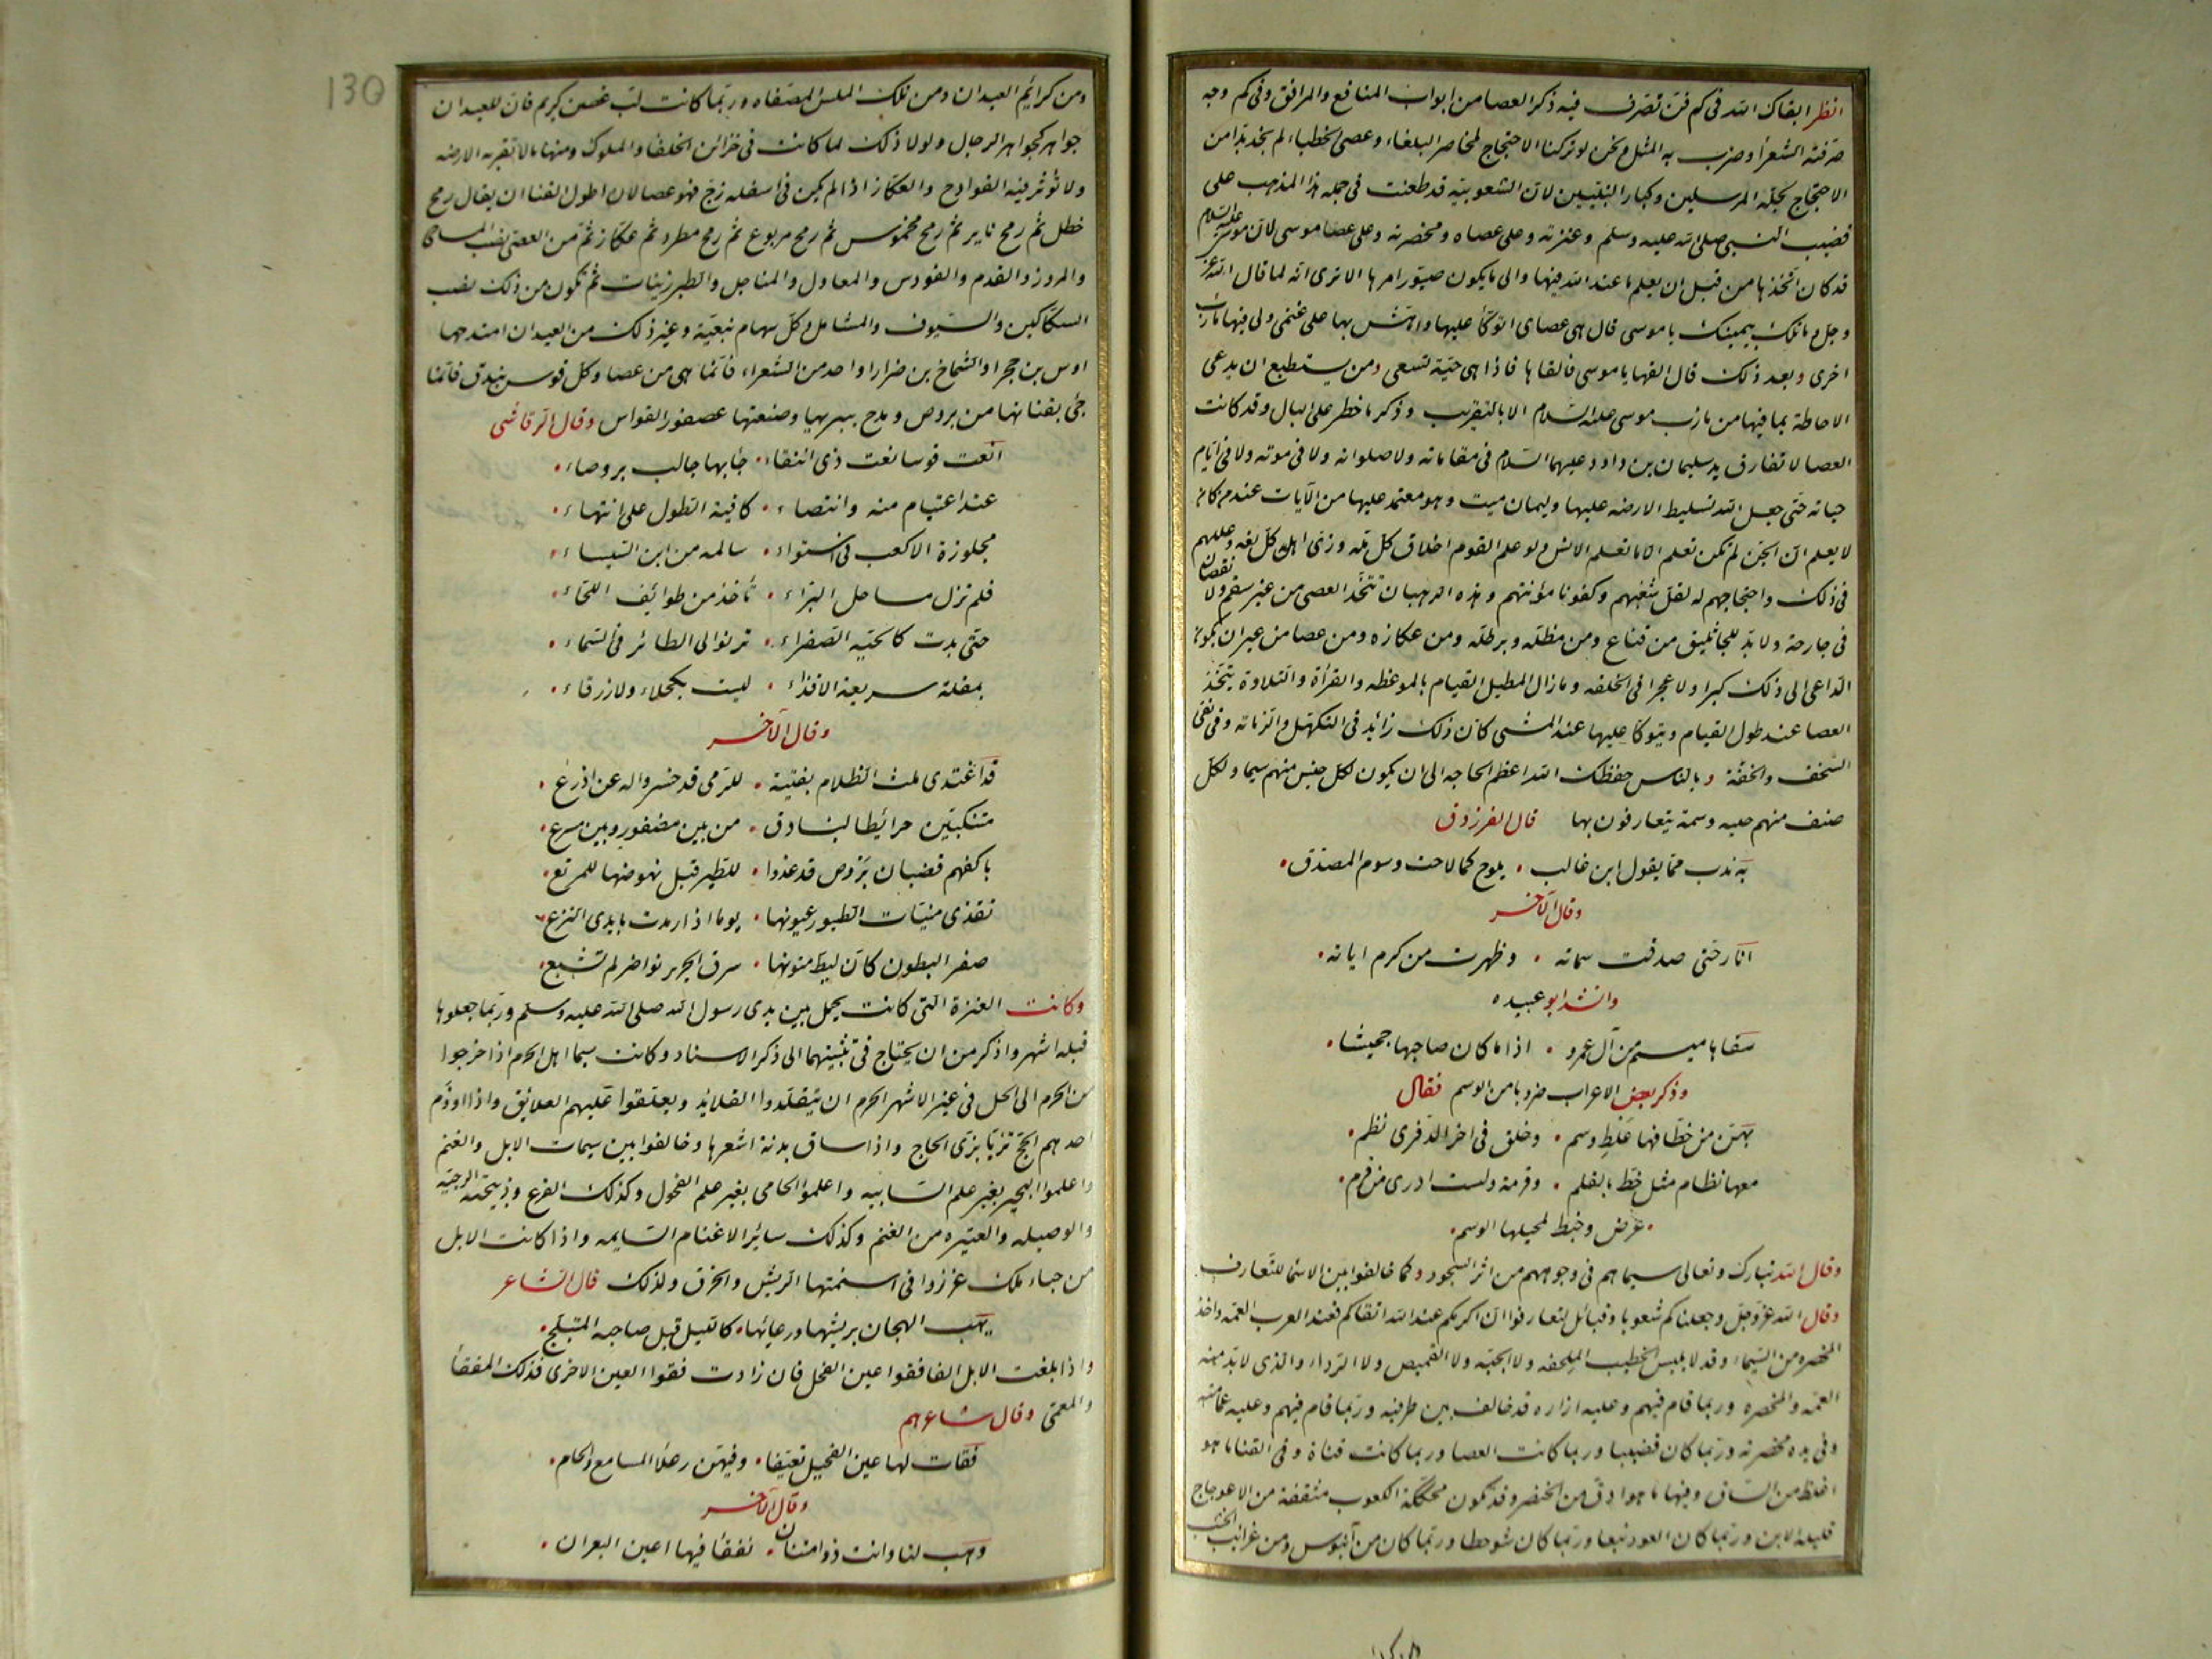 انظر ابقاك الله فى كم فن تصرف فيه ذكر العصا من ابواب المنافع والمرافق وفى كم وجه
صرفته الشعرأ وضرب به المثل ونحن لو تركنا الاحتجاج لمخاصر البلغاء وعصى الخطباء لم نجد بدا من
الاحتجاج لجلة المرسلين وكبار النبيين لان الشعوبية قد طعنت فى جملة هذا المذهب على
قضيب النبى صلى الله عليه وسلم وعنزته وعلى عصاه ومخصرته وعلى عصا موسى لان موسى عليه السلام
قد كان اتخذها من قبل ان يعلم ما عند الله فيها والى ما يكون صيور امرها الا ترى انه لما قال الله عز
وجل وما تلك بيمينك يا موسى قال هى عصاى اتوكأ عليها واهش بها على غنمى ولى فيها مأرب
اخرى وبعد ذلك قال القها يا موسى فالقاها فاذا هى حية تسعى ومن يستطيع ان يدعى
الاحاطة بما فيها من مأرب موسى عليه السلام الا بالتقريب وذكر ما خطر على البال وقد كانت
العصا لا تفارق يد سليمان بن داود عليهما السلام فى مقاماته ولا صلواته ولا فى موته ولا فى ايام
حياته حتى جعل الله تسليط الارضه عليها وسليمان ميت وهو معتمد عليها من الآيات عند من كان
لا يعلم ان الجن لم تكن تعلم الا ما تعلم الانس ولو علم القوم اخلاق كل مله وزى اهل كل لغه وعللهم
فى ذلك واحتجاجهم له لقل شغبهم وكفونا مؤنتهم وهذه الرهبان تتخذ العصى من غير سقم ولا نقصان
فى جارحة ولا بد للجاثليق من قناع ومن مظله وبرطله ومن عكازه ومن عصا من غير ان يكون
الداعى الى ذلك كبرا ولا عجزا فى الخلقه وما زال المطيل القيام بالموعظه والقرأة والتلاوة يتخذ
العصا عند طول القيام ويتوكأ عليها عند المشى كان ذلك زائد فى التكهل والزماته وفى نفى
السخف والخفة وبالناس حفظك الله اعظم الحاجه الى ان يكون لكل جنس منهم سيما ولكل
صنف منهم حليه وسمة يتعارفون بها قال الفرزدق
به ندب مما يقول ابن غالب • يلوح كما لاحت وسوم المصدق •
وقال الآخر
انار حتى صدقت سماته • وظهرت من كرم اياته •
وانشد ابو عبيده
سقاها ميسم من آل عمرو • اذا ما كان صاحبها جحيشا •
وذكر بعض الاعراب ضروبا من الوسم فقال
بهن من خطافها غلط وسم • وخلق فى اخر الذفرى نظم •
معها نظام مثل خط بالقلم • وقرمة ولست ادرى من قرم •
• عرض وخبط لمحيلها الوسم •
وقال الله تبارك وتعالى سيماهم فى وجوههم من اثر السجود وكما خالفوا بين الاسما للتعارف
وقال الله عز وجل وجعلناكم شعوبا وقبائل لتعارفوا ان اكرمكم عند الله اتقاكم فعند العرب العمه واخذ
المخصره من السيماء وقد لا يلبس الخطيب الملحفه ولا الجبة ولا القميص ولا الرداء والذى لا بد منه
العمه والمخصره وربما قام فيهم وعليه ازاره قد خالف بين طرفيه وربما قام فيهم وعليه عمامته
وفى يده مخصرته وربما كان قضيبا وربما كانت العصا وربما كانت قناة وفى القنا ما هو
اغلظ من الساق وفيها ما هو ادق من الخنصر وقد تكون محككة الكعوب مثقفة من الاعوجاج
قليلة الابن وربما كان العود نبعا وربما كان شوحطا وربما كان من آبنوس ومن غرائب الخشب
130
ومن كرايم العيدان ومن تلك الملس المصفاه وربما كانت لب غصن كريم فان للعيدان
جواهر كجواهر الرجال ولولا ذلك لما كانت فى خزائن الخلفا والملوك ومنها ما لا تقربه الارضه
ولا تؤثر فيه القوادح والعكاز اذا لم يكن فى اسفله زج فهو عصا لان اطول القنا ان يقال رمح
خطل ثم رمح ناير ثم رمح مخموس ثم رمح مربوع ثم رمح مطرد ثم عكاز ثم من العصى نصب المساحى
والمرور والقدم والفؤس والمعاول والمناجل والطبرزينات ثم تكون من ذلك نصب
السكاكين والسيوف والمشامل وكل سهام نبعية وغير ذلك من العيدان امتدحها
اوس بن حجر او الشماخ بن ضرار او احد من الشعراء فانما هى من عصا وكل قوس بندق فانما
جئ بقناتها من بروص ومدح ببريها وصنعتها عصفور القواس وقال الرقاشى
انعت قوسا نعت ذى انتقاء • جأبها جالب بروصاء •
عند اعتيام منه وانتصاء • كافية الطول على انتهاء •
مجلوزة الاكعب فى استواء • سالمه من ابن السيساء •
فلم تزل مساحل البراء • تأخذ من طوائف اللحاء •
حتى بدت كالحية الصفراء • ترنو الى الطائر فى السماء •
بمقلة سريعة الاقذاء • ليست بكحلاء ولا زرقاء •
وقال الآخر
قد اغتدى ملث الظلام بفتية • للرمى قد حسروا له عن اذرع •
متنكبين خرائطا لبنادق • من بين مضفور وبين مرسع •
باكفهم قضبان بروص قد غدوا • للطير قبل نهوضها للمرتع •
تقذى منيات الطيور عيونها • يوما اذا رمدت بايدى النزع •
صفر البطون كأن ليط متونها • سرق الحرير نواضر لم تشبع •
وكانت العنزة التى كانت يحمل بين يدى رسول الله صلى الله عليه وسلم وربما جعلوها
قبله اشهر واذكر من ان يحتاج فى تثبيتهما الى ذكر الاسناد وكانت سيما اهل الحرم اذا خرجوا
من الحرم الى الحل فى غير الاشهر الحرم ان يتقلدوا القلايد ويعلقوا عليهم العلايق واذا اوذم
احدهم الحج تزيا بزى الحاج واذا ساق بدنة اشعرها وخالفوا بين سيمات الابل والغنم
واعلموا البحير بغير علم السايبه واعلموا الحامى بغير علم الفحول وكذلك الفرع وذبيحته الرجبيه
والوصيله والعتيره من الغنم وكذلك سائر الاغنام السايمه واذا كانت الابل
من حباء ملك غرزوا فى اسنمتها الريش والخرق ولذلك قال الشاعر
يهب الهجان بريشها ورعائها • كالليل قبل صباحه المتبلج •
واذا بلغت الابل الفا فقوا عين الفحل فان زادت فقوا العين الاخرى فذلك المفقأ
والمعمى وقال شاعرهم
فقات لها عين الفحيل تعيفا • وفيهن رعلأ المسامع والحام •
وقال الآخر
وهب لنا وانت ذو امتنان • تفقأ فيها اعين البعران •